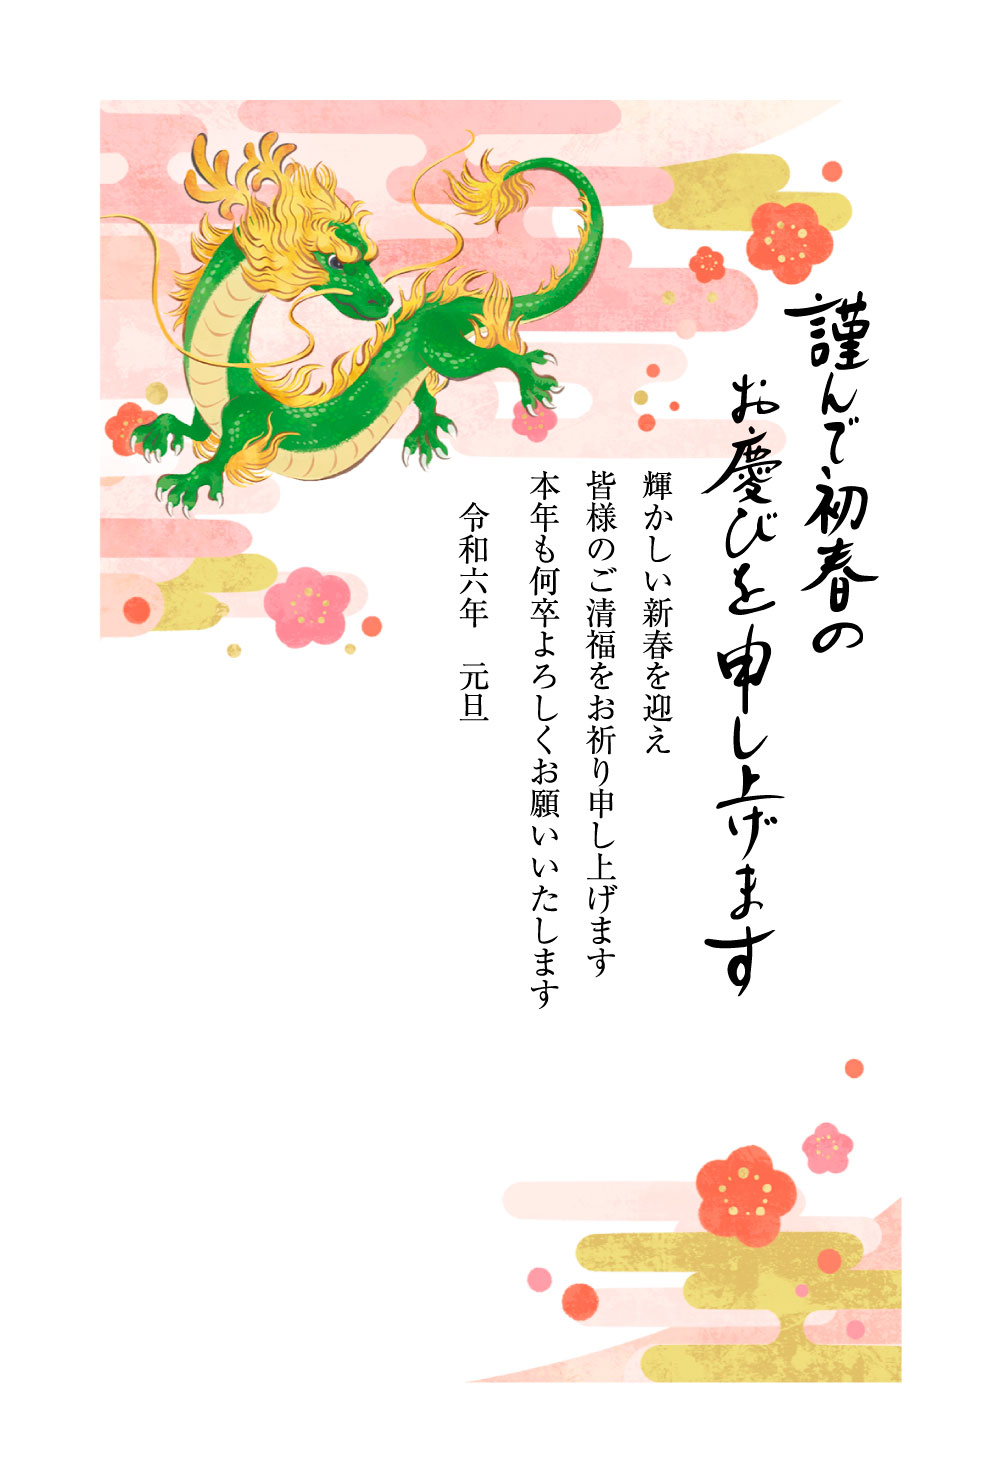 謹んで初春の
お慶びを申し上げます
輝かしい新春を迎え
皆様のご清福をお祈り申し上げます
本年も何卒よろしくお願いいたします
令和六年　元旦